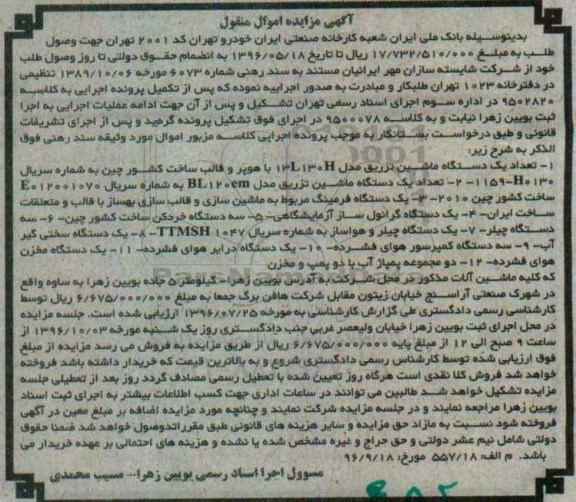 آگهی مزایده اموال منقول
بدینوسیله بانک ملی ایران شعبه کارخانه صنعتی ایران خودرو تهران کد ۲۰۰۱ تهران جهت وصول
طلب به مبلغ ۱۷/۷۳۲/۵۱۰/۰۰۰ ریال تا تاریخ ۱۳۹۶/۰۵/۱۸ به انضمام حقوق دولتی تا روز وصول طلب
خود از شرکت شایسته سازان مهر ایرانیان مستند به سند رهنی شماره ۶۰۷۳ مورخه ۱۳۸۹/۱۰/۰۶ تنظیمی
در دفترخانه ۱۰۲۳ تهران طلبکار و مبادرت به صدور اجراییه نموده که پس از تکمیل پرونده اجرایی به کلاسه
۹۵۰۲۸۲۰ در اداره سوم اجرای اسناد رسمی تهران تشکیل و پس از آن جهت ادامه عملیات اجرایی به اجرا
ثبت بویین زهرا نیابت و به کلاسه ۹۵۰۰۰۷۸ در اجرای فوق تشکیل پرونده گردید و پس از اجرای تشریفات
قانونی و طبق درخواست بستانکار به موجب پرونده اجرایی کلاسه مزبور اموال مورد وثیقه سند رهنی فوق
الذکر به شرح زیر:
۱- تعداد یک دستگاه ماشین تزریق مدل ۱۳L۱۳۰H با هوپر و قالب ساخت کشور چین به شماره سریال
۱۱۵۹-H۰۱۳۰ ۲- تعداد یک دستگاه ماشین تزریق مدل BL۱۲۰em به شماره سریال E۰۱۲۰۰۱۰۷۰
ساخت کشور چین ۲۰۱۰- ۳- یک دستگاه فرمینگ مربوط به ماشین سازی و قالب سازی بهساز با قالب و متعلقات
ساخت ایران- ۴- یک دستگاه گرانول ساز آزمایشگاهی- ۵- سه دستگاه خردکن ساخت کشور چین- ۶- سه
دستگاه چیلر- ۷- یک دستگاه چیلر و هواساز به شماره سریال ۱۰۴۷ TTMSH- ۸- یک دستگاه سختی گیر
آب- ۹- سه دستگاه کمپرسور هوای فشرده- ۱۰- یک دستگاه درایر هوای فشرده- ۱۱- یک دستگاه مخزن
هوای فشرده- ۱۲- دو مجموعه پمپاژ آب با دو پمپ و مخزن
که کلیه ماشین آلات مذکور در محل شرکت به آدرس بویین زهرا- کیلومتر ۵ جاده بویین زهرا به ساوه واقع
در شهرک صنعتی آراسنج خیابان زیتون مقابل شرکت هافن برگ جمعا به مبلغ ۶/۶۷۵/۰۰۰/۰۰۰ ریال توسط
کارشناسی رسمی دادگستری طی گزارش کارشناسی به مورخه ۱۳۹۶/۰۷/۲۵ ارزیابی شده است. جلسه مزایده
در محل اجرای ثبت بویین زهرا خیابان ولیعصر غربی جنب دادگستری روز یک شنبه مورخه ۱۳۹۶/۱۰/۰۳ از
ساعت ۹ صبح الی ۱۲ از مبلغ پایه ۶/۶۷۵/۰۰۰/۰۰۰ ریال از طریق مزایده به فروش می رسد مزایده از مبلغ
فوق ارزیابی شده توسط کارشناس رسمی دادگستری شروع و به بالاترین قیمت که خریدار داشته باشد فروخته
خواهد شد فروش کلا نقدی است هرگاه روز تعیین شده با تعطیل رسمی مصادف گردد روز بعد از تعطیلی جلسه
مزایده تشکیل خواهد شد طالبین می توانند در ساعات اداری جهت کسب اطلاعات بیشتر به اجرای ثبت اسناد
بویین زهرا مراجعه نمایند و در جلسه مزایده شرکت نمایند و چنانچه مورد مزایده اضافه بر مبلغ معین در آگهی
فروخته شود نسبت به مازاد حق مزایده و سایر هزینه های قانونی طبق مقررات وصول خواهد شد ضمنا حقوق
دولتی شامل نیم عشر دولتی و حق حراج و غیره مشخص شده یا نشده و هزینه های احتمالی بر عهده خریدار می
باشد. م الف: ۵۵۷/۱۸ مورخ: ۹۶/۹/۱۸
مسوول اجرا اسناد رسمی بویین زهرا... مسیب محمدی